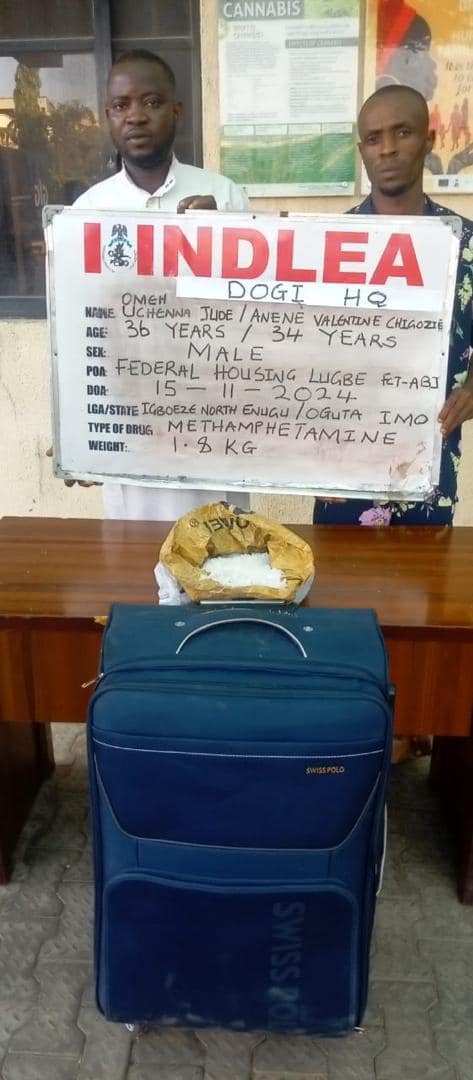 CANNABIS
NDLEA
DOGI HQ
OMEH
NAME: UCHENNA JUDE / ANENE VALENTINE CHIGOZIE
AGE: 36 YEARS / 34 YEARS
SEX: MALE
POA: FEDERAL HOUSING LUGBE FCT-ABJ
DOA: 15-11-2024
LGA/STATE IGBOEZE NORTH ENUGU / OGUTA IMO
TYPE OF DRUG METHAMPHETAMINE
WEIGHT: 1.8 KG
SWISS POLO
SWISS POLO